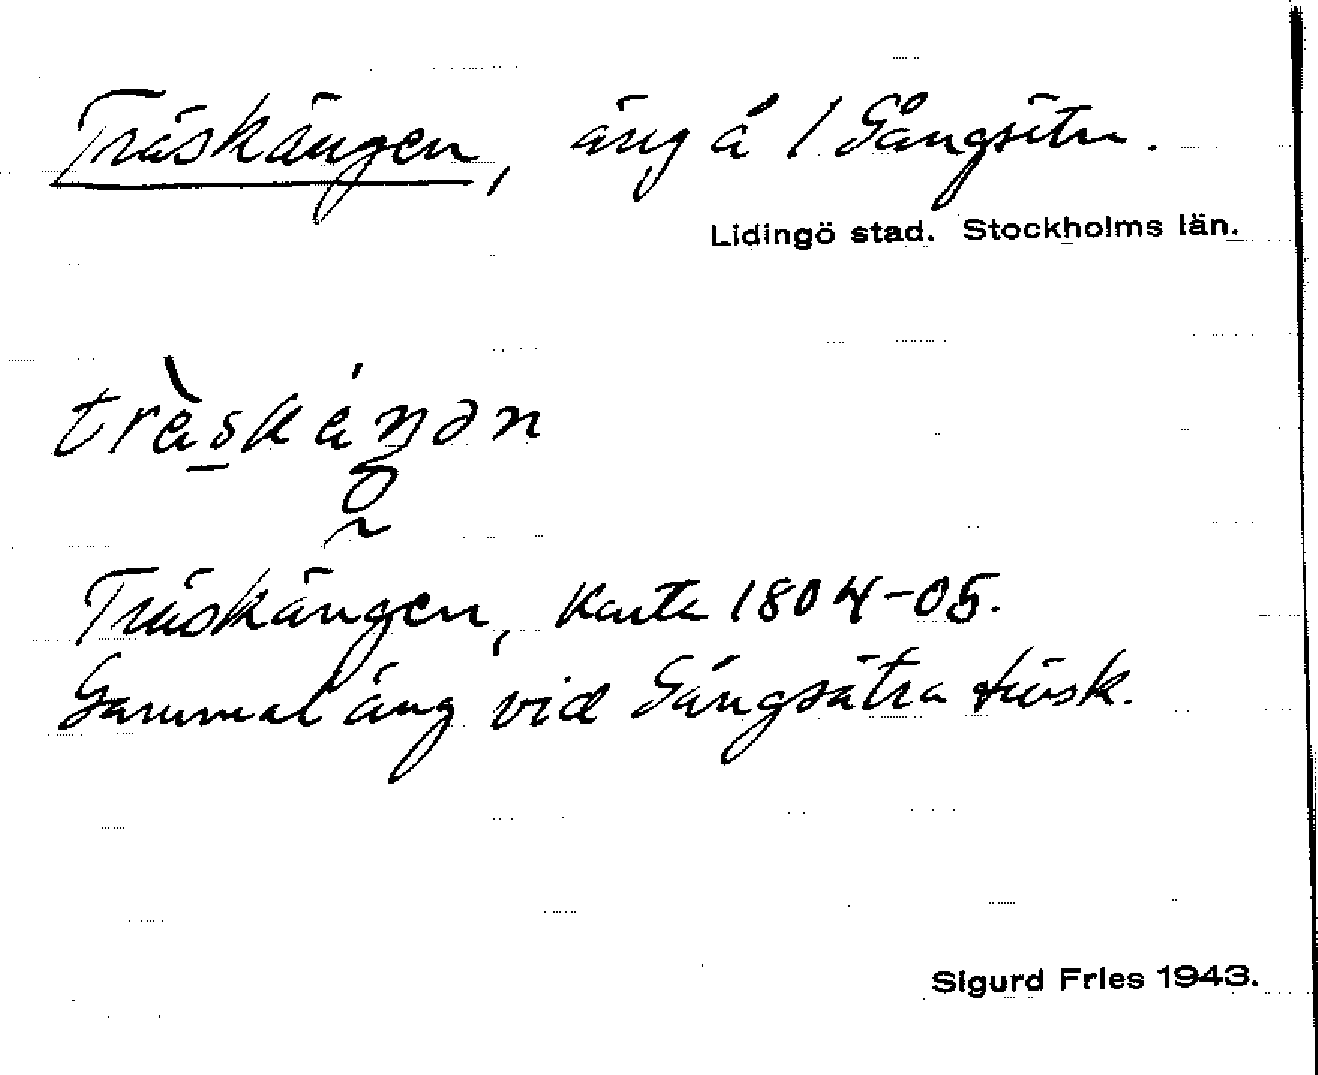 Träskängen, äng å 1 Gångsätra.
Lidingö stad. Stockholms län.
trä̀skáŋən
Träskängen, Karta 1804-05.
Gammal äng vid Gångsätra träsk.
Sigurd Fries 1943.